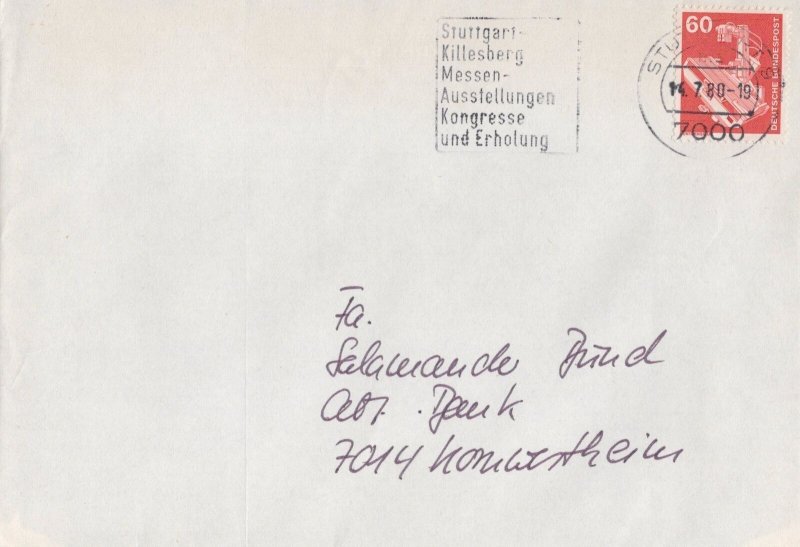 Stuttgart-
Killesberg
Messen-
Ausstellungen
Kongresse
und Erholung
60
DEUTSCHE BUNDESPOST
14.7.80-19
7000
Fa.
Salamander Bund
Abt. Bank
7014 Kornwestheim